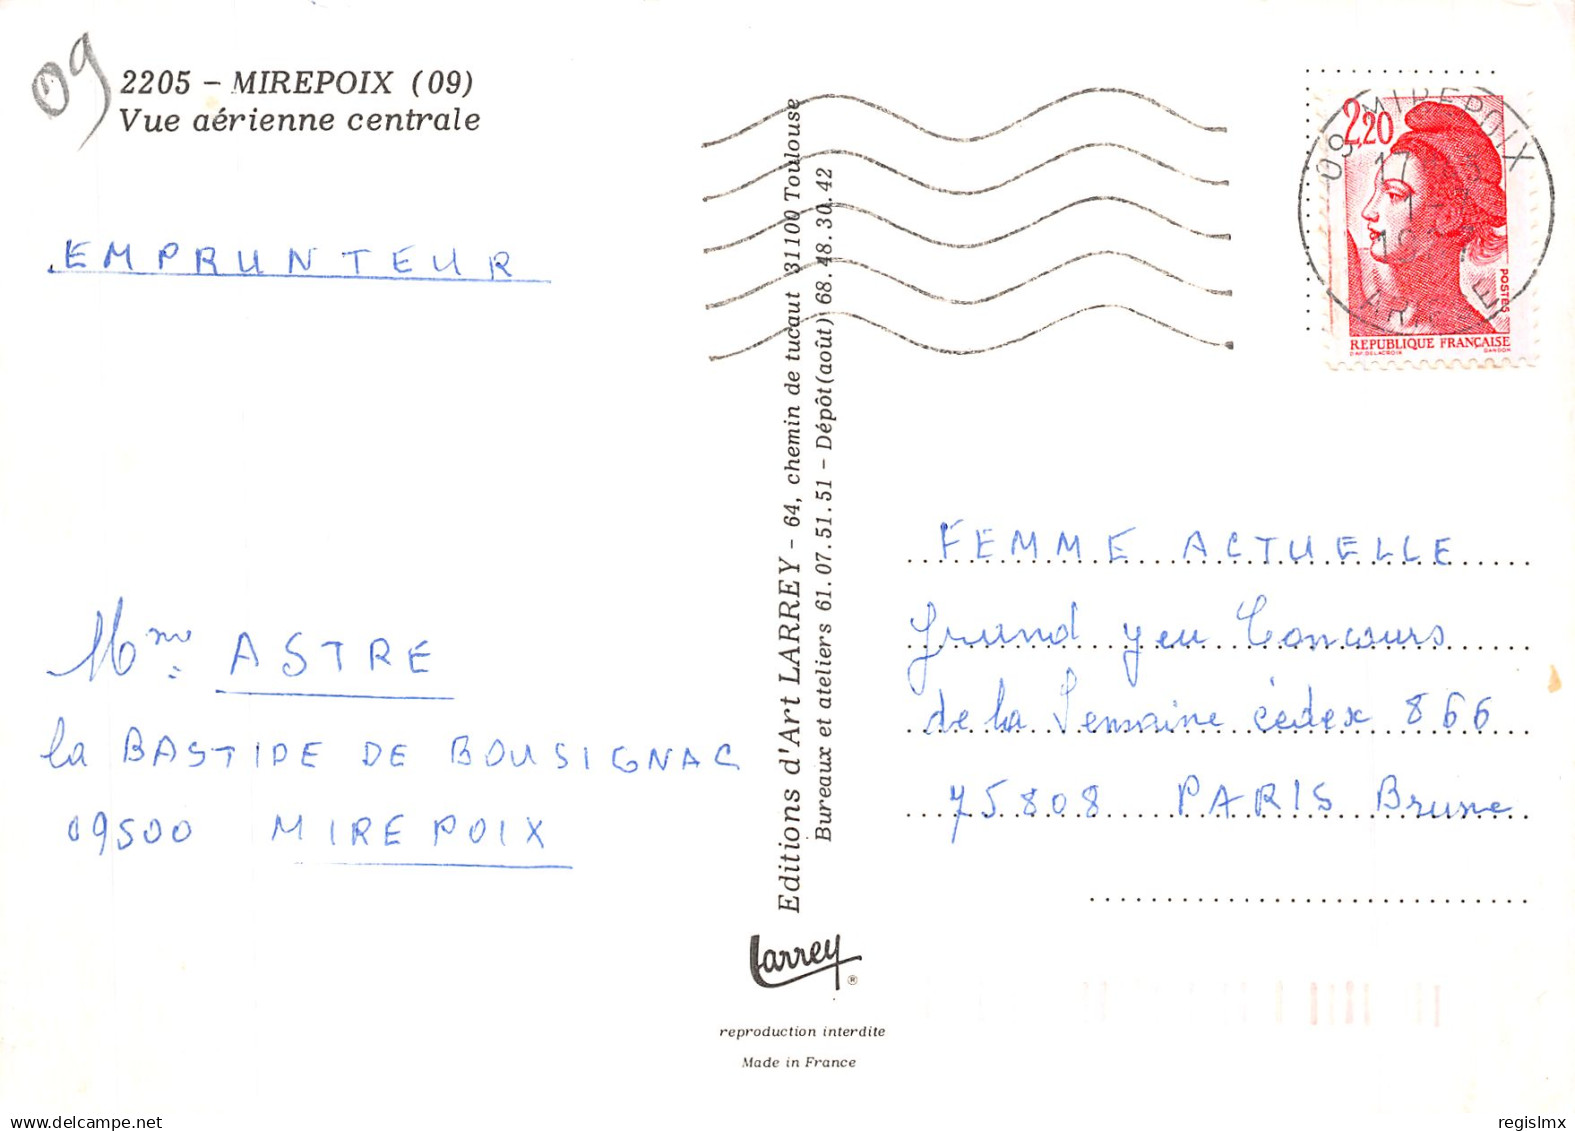 09
2205 - MIREPOIX (09)
Vue aérienne centrale
EMPRUNTEUR
Mme ASTRE
la BASTIDE DE BOUSIGNAC
09500 MIREPOIX
Editions d'Art LARREY - 64, chemin de tucaut 31100 Toulouse
Bureaux et ateliers 61.07.51.51 - Dépôt (août) 68.48.30.42
Larrey ®
reproduction interdite
Made in France
09 MIREPOIX
17
ARIEGE
2,20
POSTES
REPUBLIQUE FRANÇAISE
D'AP. DELACROIX GANDON
FEMME ACTUELLE
Grand yeu Concours
de la Semaine cédex 866
75808 PARIS Brune
regislmx